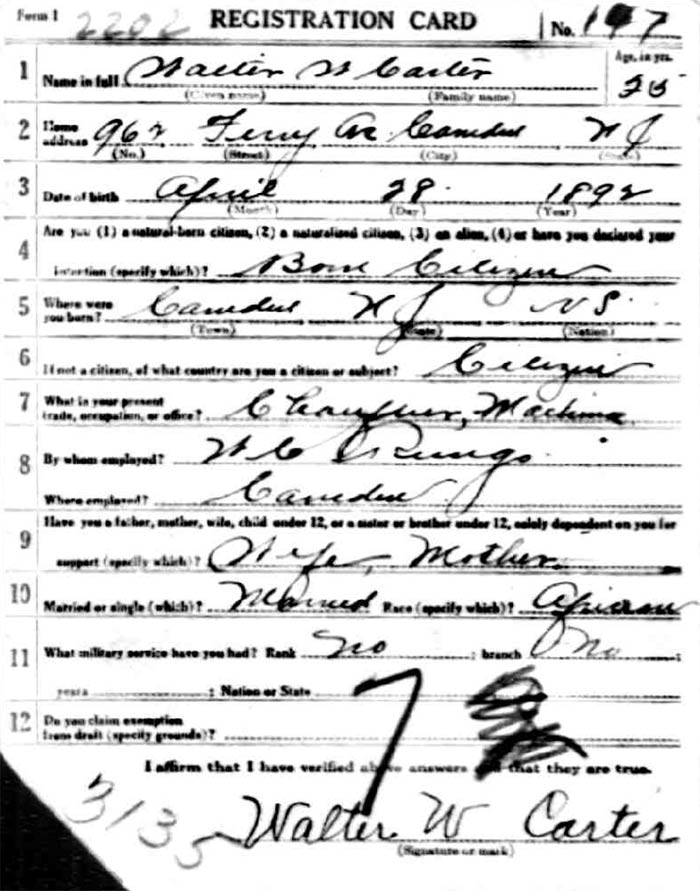 Form 1 2202 REGISTRATION CARD No. 147
1 Name in full Walter W Carter Age, in yrs. 25
(Given name) (Family name)
2 Home address 962 Ferry Av Camden N J
(No.) (Street) (City) (State)
3 Date of birth April 28 1892
(Month) (Day) (Year)
4 Are you (1) a natural-born citizen, (2) a naturalized citizen, (3) an alien, (4) or have you declared your
intention (specify which)? Born Citizen
5 Where were you born? Camden N J US
(Town) (State) (Nation)
6 If not a citizen, of what country are you a citizen or subject? Citizen
7 What is your present trade, occupation, or office? Chauffeur,
8 By whom employed? W C
Where employed? Camden
9 Have you a father, mother, wife, child under 12, or a sister or brother under 12, solely dependent on you for
support (specify which)? Wife, Mother.
10 Married or single (which)? Married Race (specify which)? African
11 What military service have you had? Rank no ; branch no ;
years ; Nation or State
12 Do you claim exemption from draft (specify grounds)?
7
I affirm that I have verified above answers and that they are true.
3135 Walter W Carter
(Signature or mark)